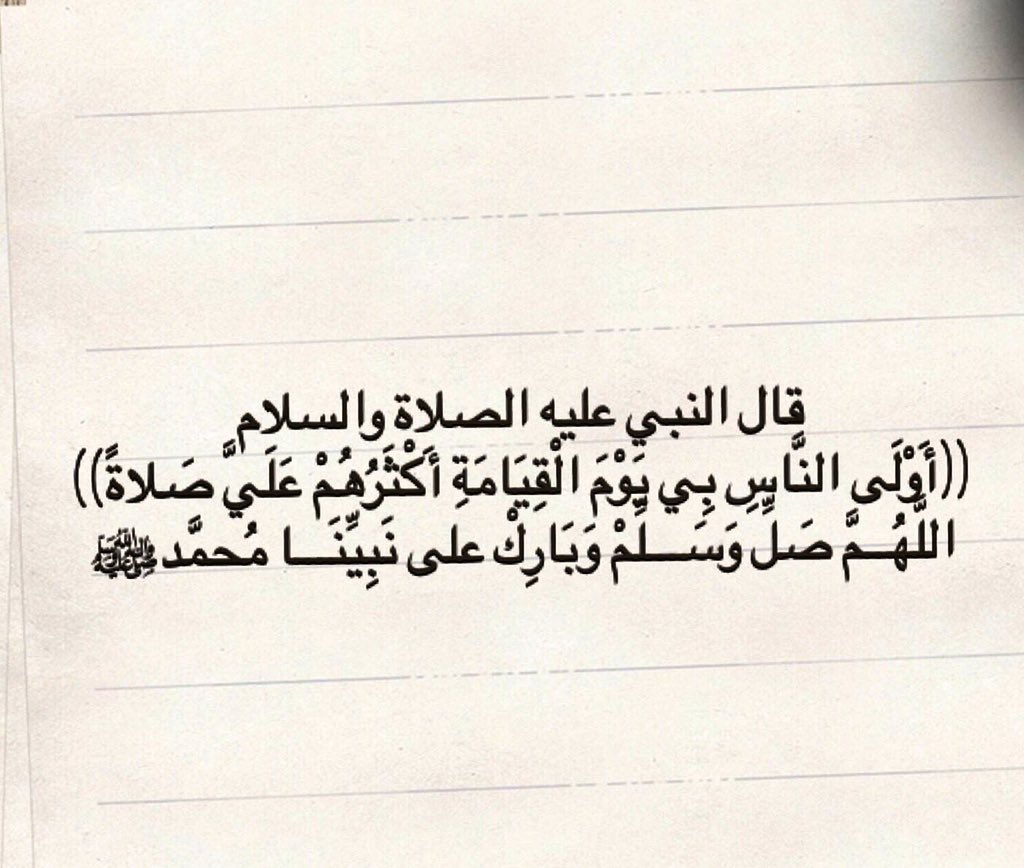 قال النبي عليه الصلاة والسلام
((أَوْلَى النَّاسِ بِي يَوْمَ الْقِيَامَةِ أَكْثَرُهُمْ عَلَيَّ صَلاةً))
اللَّهُــمَّ صَلِّ وَسَـــلِّمْ وَبَارِكْ على نَبِيِّنَـــا مُحمَّد ﷺ